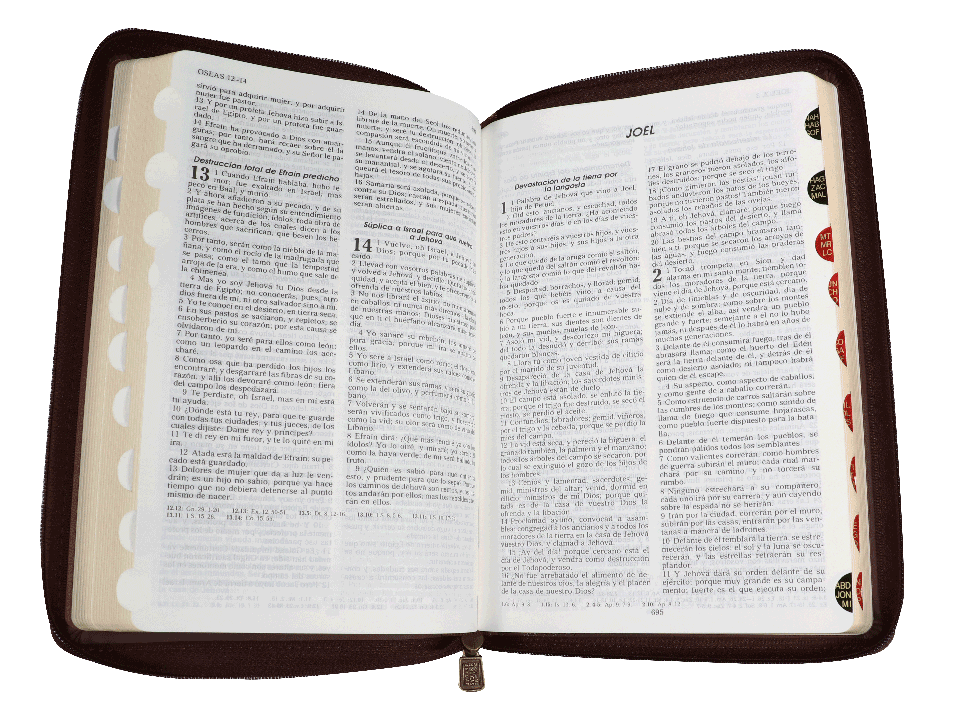 OSEAS 12-14
sirvió para adquirir mujer, y por adquirir
mujer fue pastor.
13 Y por un profeta Jehová hizo subir a Is-
rael de Egipto, y por un profeta fue guar-
dado.
14 Efraín ha provocado a Dios con amar-
guras; por tanto, hará recaer sobre él la
sangre que ha derramado, y su Señor le pa-
gará su oprobio.
Destrucción total de Efraín predicha
13 1 Cuando Efraín hablaba, hubo te-
mor; fue exaltado en Israel; mas
pecó en Baal, y murió.
2 Y ahora añadieron a su pecado, y de su
plata se han hecho según su entendimiento
imágenes de fundición, ídolos, toda obra de
artífices, acerca de los cuales dicen a los
hombres que sacrifican, que besen los be-
cerros.
3 Por tanto, serán como la niebla de la ma-
ñana, y como el rocío de la madrugada que
se pasa; como el tamo que la tempestad
arroja de la era, y como el humo que sale de
la chimenea.
4 Mas yo soy Jehová tu Dios desde la
tierra de Egipto; no conocerás, pues, otro
dios fuera de mí, ni otro salvador sino a mí.
5 Yo te conocí en el desierto, en tierra seca.
6 En sus pastos se saciaron, y repletos, se
ensoberbeció su corazón; por esta causa se
olvidaron de mí.
7 Por tanto, yo seré para ellos como león;
como un leopardo en el camino los ace-
charé.
8 Como osa que ha perdido los hijos los
encontraré, y desgarraré las fibras de su co-
razón, y allí los devoraré como león; fiera
del campo los despedazará.
9 Te perdiste, oh Israel, mas en mí está
tu ayuda.
10 ¿Dónde está tu rey, para que te guarde
con todas tus ciudades; y tus jueces, de los
cuales dijiste: Dame rey y príncipes?
11 Te di rey en mi furor, y te lo quité en mi
ira.
12 Atada está la maldad de Efraín; su pe-
cado está guardado.
13 Dolores de mujer que da a luz le ven-
drán; es un hijo no sabio, porque ya hace
tiempo que no debiera detenerse al punto
mismo de nacer.
14 De la mano del Seol los
libraré de la muerte. Oh
muerte, yo seré tu destrucción, oh
compasión será escondida de mi
15 Aunque él fructifique entre los her-
manos, vendrá el solano, viento de
se levantará desde el desierto, y se
su manantial, y se agotará su
queará el tesoro de todas sus preciosas al-
hajas.
16 Samaria será asolada, porque se
contra su Dios; caerán a espada; sus niños
serán estrellados, y sus mujeres encintas
serán abiertas.
Súplica a Israel para que vuelva
a Jehová
14 1 Vuelve, oh Israel, a Jehová tu
Dios; porque por tu pecado has
caído.
2 Llevad con vosotros palabras de súplica,
y volved a Jehová, y decidle: Quita toda ini-
quidad, y acepta el bien, y te ofreceremos la
ofrenda de nuestros labios.
3 No nos librará el asirio; no montaremos
en caballos, ni nunca más diremos a la obra
de nuestras manos: Dioses nuestros; por-
que en ti el huérfano alcanzará misericor-
dia.
4 Yo sanaré su rebelión, los amaré de
pura gracia; porque mi ira se apartó de
ellos.
5 Yo seré a Israel como rocío; él florecerá
como lirio, y extenderá sus raíces como el
Líbano.
6 Se extenderán sus ramas, y será su gloria
como la del olivo, y perfumará como el Lí-
bano.
7 Volverán y se sentarán bajo su sombra;
serán vivificados como trigo, y florecerán
como la vid; su olor será como de vino del
Líbano.
8 Efraín dirá: ¿Qué más tendré ya con los
ídolos? Yo lo oiré, y miraré; yo seré a él
como la haya verde; de mí será hallado tu
fruto.
9 ¿Quién es sabio para que entienda
esto, y prudente para que lo sepa? Porque
los caminos de Jehová son rectos, y los jus-
tos andarán por ellos; mas los rebeldes cae-
rán en ellos.
JOEL
Devastación de la tierra por
la langosta
1 1 Palabra de Jehová que vino a Joel,
hijo de Petuel.
2 Oíd esto, ancianos, y escuchad, todos
los moradores de la tierra. ¿Ha acontecido
esto en vuestros días, o en los días de vues-
tros padres?
3 De esto contaréis a vuestros hijos, y vues-
tros hijos a sus hijos, y sus hijos a la otra
generación.
4 Lo que quedó de la oruga comió el saltón,
y lo que quedó del saltón comió el revoltón;
y la langosta comió lo que del revoltón ha-
bía quedado.
5 Despertad, borrachos, y llorad; gemid,
todos los que bebéis vino, a causa del
mosto, porque os es quitado de vuestra
boca.
6 Porque pueblo fuerte e innumerable su-
bió a mi tierra; sus dientes son dientes de
león, y sus muelas, muelas de león.
7 Asoló mi vid, y descortezó mi higuera;
del todo la desnudó y derribó; sus ramas
quedaron blancas.
8 Llora tú como joven vestida de cilicio
por el marido de su juventud.
9 Desapareció de la casa de Jehová la
ofrenda y la libación; los sacerdotes minis-
tros de Jehová están de duelo.
10 El campo está asolado, se enlutó la tie-
rra; porque el trigo fue destruido, se secó el
mosto, se perdió el aceite.
11 Confundíos, labradores; gemid, viñeros,
por el trigo y la cebada, porque se perdió la
mies del campo.
12 La vid está seca, y pereció la higuera; el
granado también, la palmera y el manzano;
todos los árboles del campo se secaron, por
lo cual se extinguió el gozo de los hijos de
los hombres.
13 Ceñíos y lamentad, sacerdotes; ge-
mid, ministros del altar; venid, dormid en
cilicio, ministros de mi Dios; porque qui-
tada es de la casa de vuestro Dios la
ofrenda y la libación.
14 Proclamad ayuno, convocad a asam-
blea; congregad a los ancianos y a todos los
moradores de la tierra en la casa de Jehová
vuestro Dios, y clamad a Jehová.
15 ¡Ay del día! porque cercano está el
día de Jehová, y vendrá como destrucción
por el Todopoderoso.
16 ¿No fue arrebatado el alimento de de-
lante de nuestros ojos, la alegría y el placer
de la casa de nuestro Dios?
17 El grano se pudrió debajo de los terro-
nes, los graneros fueron asolados, los alfo-
líes destruidos; porque se secó el trigo.
18 ¡Cómo gimieron las bestias! ¡cuán tur-
bados anduvieron los hatos de los bueyes,
porque no tuvieron pastos! También fueron
asolados los rebaños de las ovejas.
19 A ti, oh Jehová, clamaré; porque fuego
consumió los pastos del desierto, y llama
abrasó todos los árboles del campo.
20 Las bestias del campo bramarán tam-
bién a ti, porque se secaron los arroyos de
las aguas, y fuego consumió las praderas
del desierto.
2 1 Tocad trompeta en Sion, y dad
alarma en mi santo monte; tiemblen to-
dos los moradores de la tierra, porque
viene el día de Jehová, porque está cercano.
2 Día de tinieblas y de oscuridad, día de
nube y de sombra; como sobre los montes
se extiende el alba, así vendrá un pueblo
grande y fuerte; semejante a él no lo hubo
jamás, ni después de él lo habrá en años de
muchas generaciones.
3 Delante de él consumirá fuego, tras de él
abrasará llama; como el huerto del Edén
será la tierra delante de él, y detrás de él
como desierto asolado; ni tampoco habrá
quien de él escape.
4 Su aspecto, como aspecto de caballos,
y como gente de a caballo correrán.
5 Como estruendo de carros saltarán sobre
las cumbres de los montes; como sonido de
llama de fuego que consume hojarascas,
como pueblo fuerte dispuesto para la bata-
lla.
6 Delante de él temerán los pueblos; se
pondrán pálidos todos los semblantes.
7 Como valientes correrán, como hombres
de guerra subirán el muro; cada cual mar-
chará por su camino, y no torcerá su
rumbo.
8 Ninguno estrechará a su compañero,
cada uno irá por su carrera; y aun cayendo
sobre la espada no se herirán.
9 Irán por la ciudad, correrán por el muro,
subirán por las casas, entrarán por las ven-
tanas a manera de ladrones.
10 Delante de él temblará la tierra, se estre-
mecerán los cielos; el sol y la luna se oscu-
recerán, y las estrellas retraerán su res-
plandor.
11 Y Jehová dará su orden delante de su
ejército; porque muy grande es su campa-
mento; fuerte es el que ejecuta su orden;
695
NAH
HAB
SOF
HAG
ZAC
MAL
MT
MR
LC
ABD
JON
MI